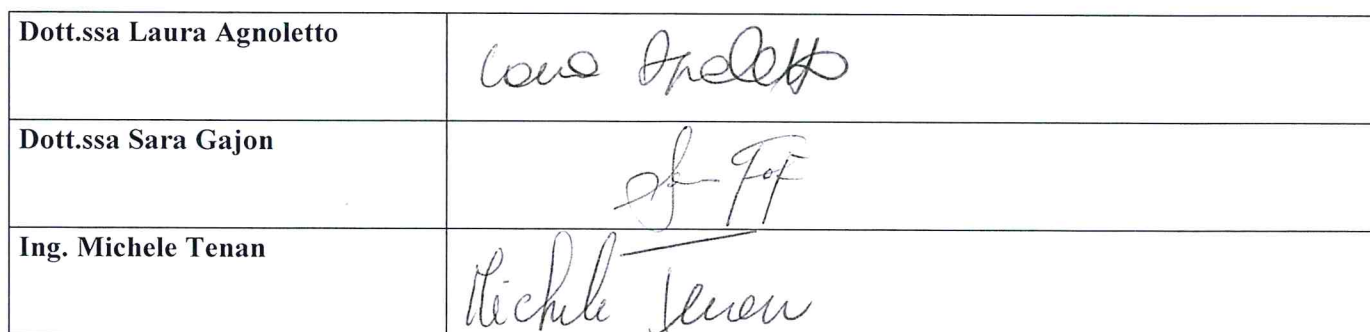 Dott.ssa Laura Agnoletto
Laura Agnoletto
Dott.ssa Sara Gajon
Ing. Michele Tenan
Michele Tenan